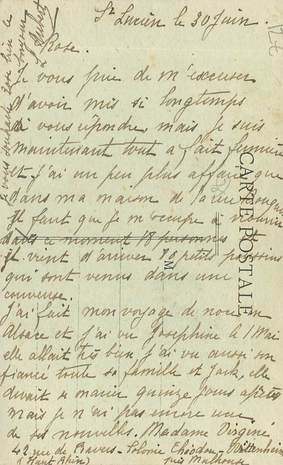 St Lucien le 30 Juin.
Rose.
Je vous prie de m'excuser
d'avoir mis si longtemps
à vous répondre mais je suis
maintenant tout a fait fermière
et j'ai un peu plus affaire que
dans ma maison de la rue
Il faut que je m'occupe à nourrir
dans ce moment 18 personnes
il vient d'arriver 80 petits poussins
qui sont venus dans une
couveuse.
j'ai fait mon voyage de noce en
Alsace et j'ai vu Josephine le 1 Mai
elle allait très bien j'ai vu aussi son
fiancé toute sa famille et Jack, elle
devait se marier quinze jours après
mais je n'ai pas encore une
de ses nouvelles. Madame Virginé
42 rue de Colonie Théodor Wittenheim
(Haut Rhin) près Mulhouse
CARTE POSTALE
je vous souhaite